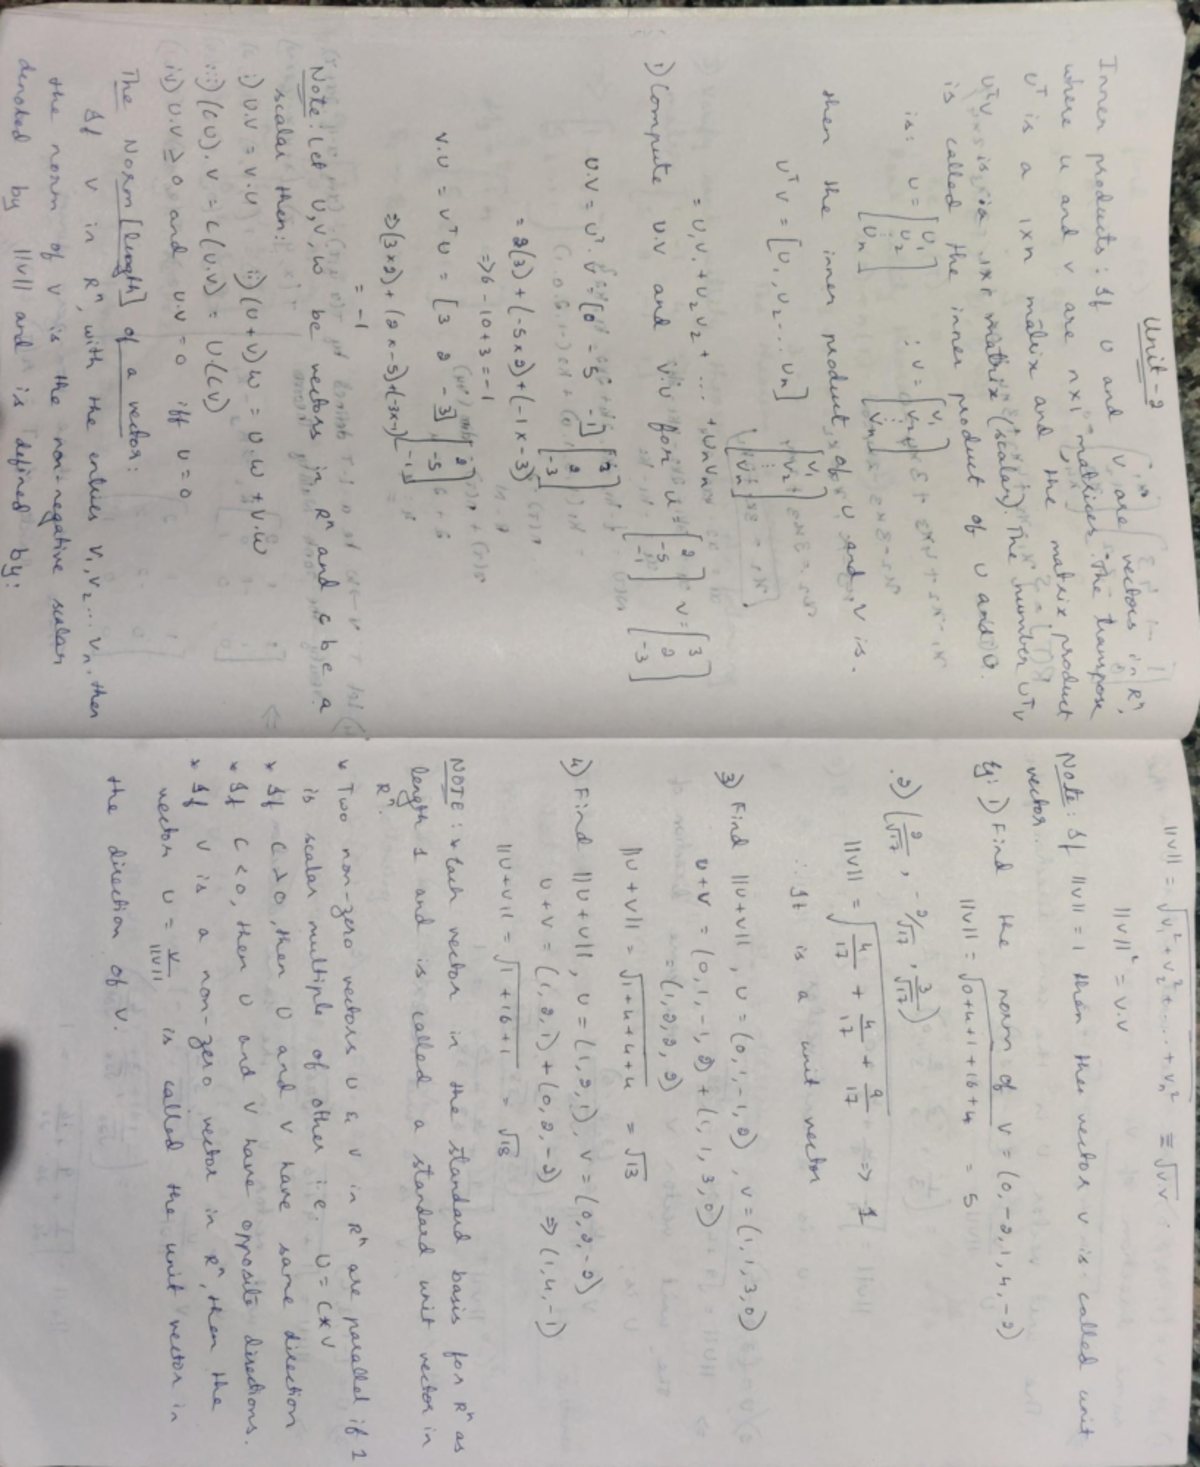 Unit-2
Inner products: If u and v are vectors in Rⁿ,
where u and v are n×1 matrices. The transpose
uᵀ is a 1×n matrix and the matrix product
uᵀv is 1×1 matrix (scalar). The number uᵀv
is called the inner product of u and v.
is: u = [u₁ u₂ ⋮ uₙ] : v = [v₁ v₂ ⋮ vₙ]
then the inner product of u and v is.
uᵀv = [u₁, u₂ ... uₙ] [v₁ v₂ ⋮ vₙ]
= u₁v₁ + u₂v₂ + ... + uₙvₙ
1) Compute u.v and v.u for u = [2 -5 -1] v = [3 2 -3]
u.v = uᵀ.v = [2 -5 -1] [3 2 -3]
= 2(3) + (-5×2) + (-1×-3)
⇒ 6 - 10 + 3 = -1
v.u = vᵀu = [3 2 -3] [2 -5 -1]
⇒ (3×2) + (2×-5) + (-3×-1)
= -1
Note: Let u, v, w be vectors in Rⁿ and c be a
scalar then:
i) u.v = v.u ii) (u+v)w = u.w + v.w
iii) (cu).v = c(u.v) = u.(cv)
iv) u.v ≥ 0 and u.v = 0 iff u = 0
The Norm [length] of a vector:
If v in Rⁿ, with the entries v₁, v₂ ... vₙ, then
the norm of v is the non-negative scalar
denoted by ||v|| and is defined by:
||v|| = √v₁² + v₂² + ... + vₙ² = √v.v
||v||² = v.v
Note: If ||v|| = 1 then the vector v is called unit
vector.
Eg: 1) Find the norm of v = (0, -2, 1, 4, -2)
||v|| = √0+4+1+16+4 = 5
2) (2/√17, -2/√17, 3/√17)
||v|| = √4/17 + 4/17 + 9/17 ⇒ 1
∴ It is a unit vector
3) Find ||u+v||, u = (0, 1, -1, 2), v = (1, 1, 3, 0)
u+v = (0, 1, -1, 2) + (1, 1, 3, 0)
= (1, 2, 2, 2)
||u+v|| = √1+4+4+4 = √13
4) Find ||u+v||, u = (1, 2, 1), v = (0, 2, -2)
u+v = (1, 2, 1) + (0, 2, -2) ⇒ (1, 4, -1)
||u+v|| = √1+16+1 = √18
NOTE: * Each vector in the standard basis for Rⁿ as
length 1 and is called a standard unit vector in
Rⁿ.
* Two non-zero vectors u & v in Rⁿ are parallel if 1
is scalar multiple of other i.e. u = c*v
* If c > 0, then u and v have same direction
* If c < 0, then u and v have opposite directions.
* If v is a non-zero vector in Rⁿ, then the
vector u = v/||v|| is called the unit vector in
the direction of v.